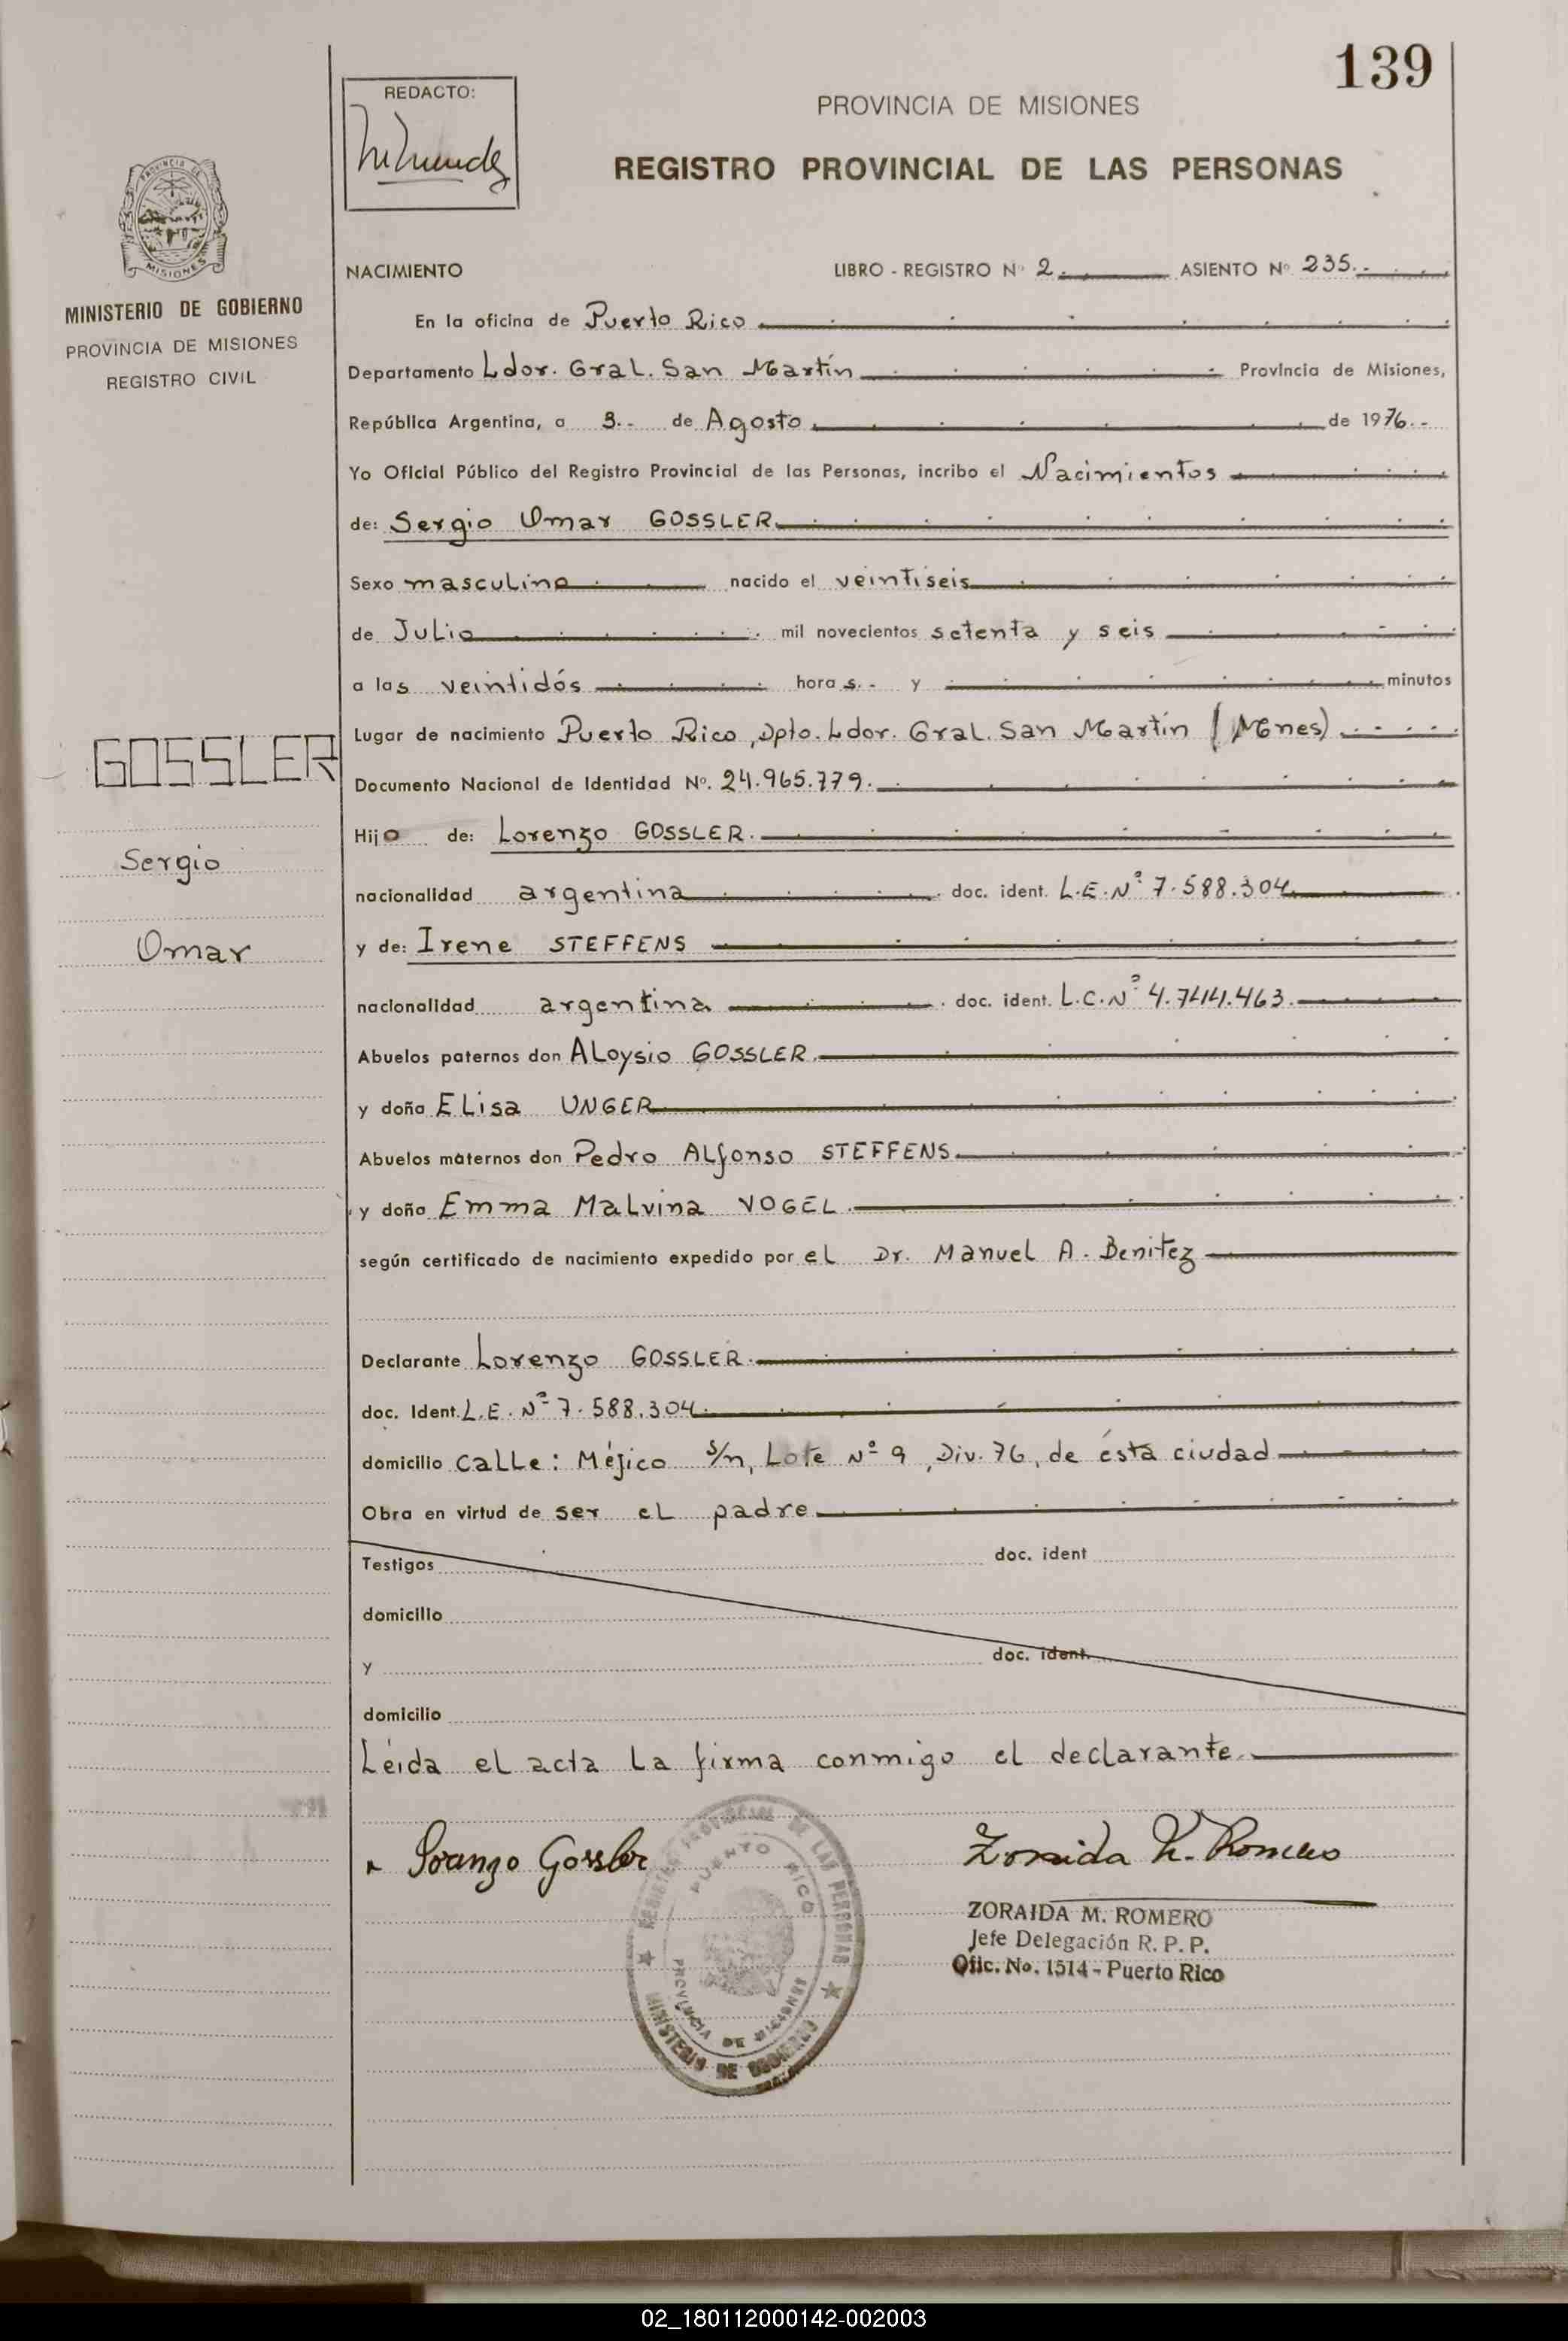 139
REDACTO:
PROVINCIA DE MISIONES
REGISTRO PROVINCIAL DE LAS PERSONAS
PROVINCIA DE
MISIONES
MINISTERIO DE GOBIERNO
PROVINCIA DE MISIONES
REGISTRO CIVIL
NACIMIENTO LIBRO - REGISTRO Nº 2. ASIENTO Nº 235.-
En la oficina de Puerto Rico
Departamento Ldor. Gral. San Martín Provincia de Misiones,
República Argentina, a 3.- de Agosto de 1976.-
Yo Oficial Público del Registro Provincial de las Personas, incribo el Nacimientos
de: Sergio Omar GOSSLER
Sexo masculino nacido el veintiseis
de Julio mil novecientos setenta y seis
a las veintidós hora s.- y minutos
Lugar de nacimiento Puerto Rico, Dpto. Ldor. Gral. San Martín (Mnes)
Documento Nacional de Identidad Nº. 24.965.779.
Hijo de: Lorenzo GOSSLER.
nacionalidad argentina doc. ident. L.E.Nº 7.588.304
y de: Irene STEFFENS
nacionalidad argentina doc. ident. L.C.Nº 4.744.463.
Abuelos paternos don Aloysio GOSSLER.
y doña Elisa UNGER
Abuelos maternos don Pedro Alfonso STEFFENS
y doña Emma Malvina VOGEL.
según certificado de nacimiento expedido por el Dr. Manuel A. Benitez
Declarante Lorenzo GOSSLER.
doc. Ident. L.E. Nº 7.588.304.
domicilio calle: Méjico s/n, Lote Nº 9, Div. 76, de ésta ciudad
Obra en virtud de ser el padre
Testigos doc. ident
domicilio
y doc. ident.
domicilio
Léida el acta la firma conmigo el declarante.
GOSSLER
Sergio
Omar
Loranzo Gossler
Zoraida M. Romero
ZORAIDA M. ROMERO
Jefe Delegación R. P. P.
Ofic. No. 1514 - Puerto Rico
REGISTRO PROVINCIAL DE LAS PERSONAS
PUERTO RICO
PROVINCIA DE MISIONES
MINISTERIO DE GOBIERNO
02_180112000142-002003